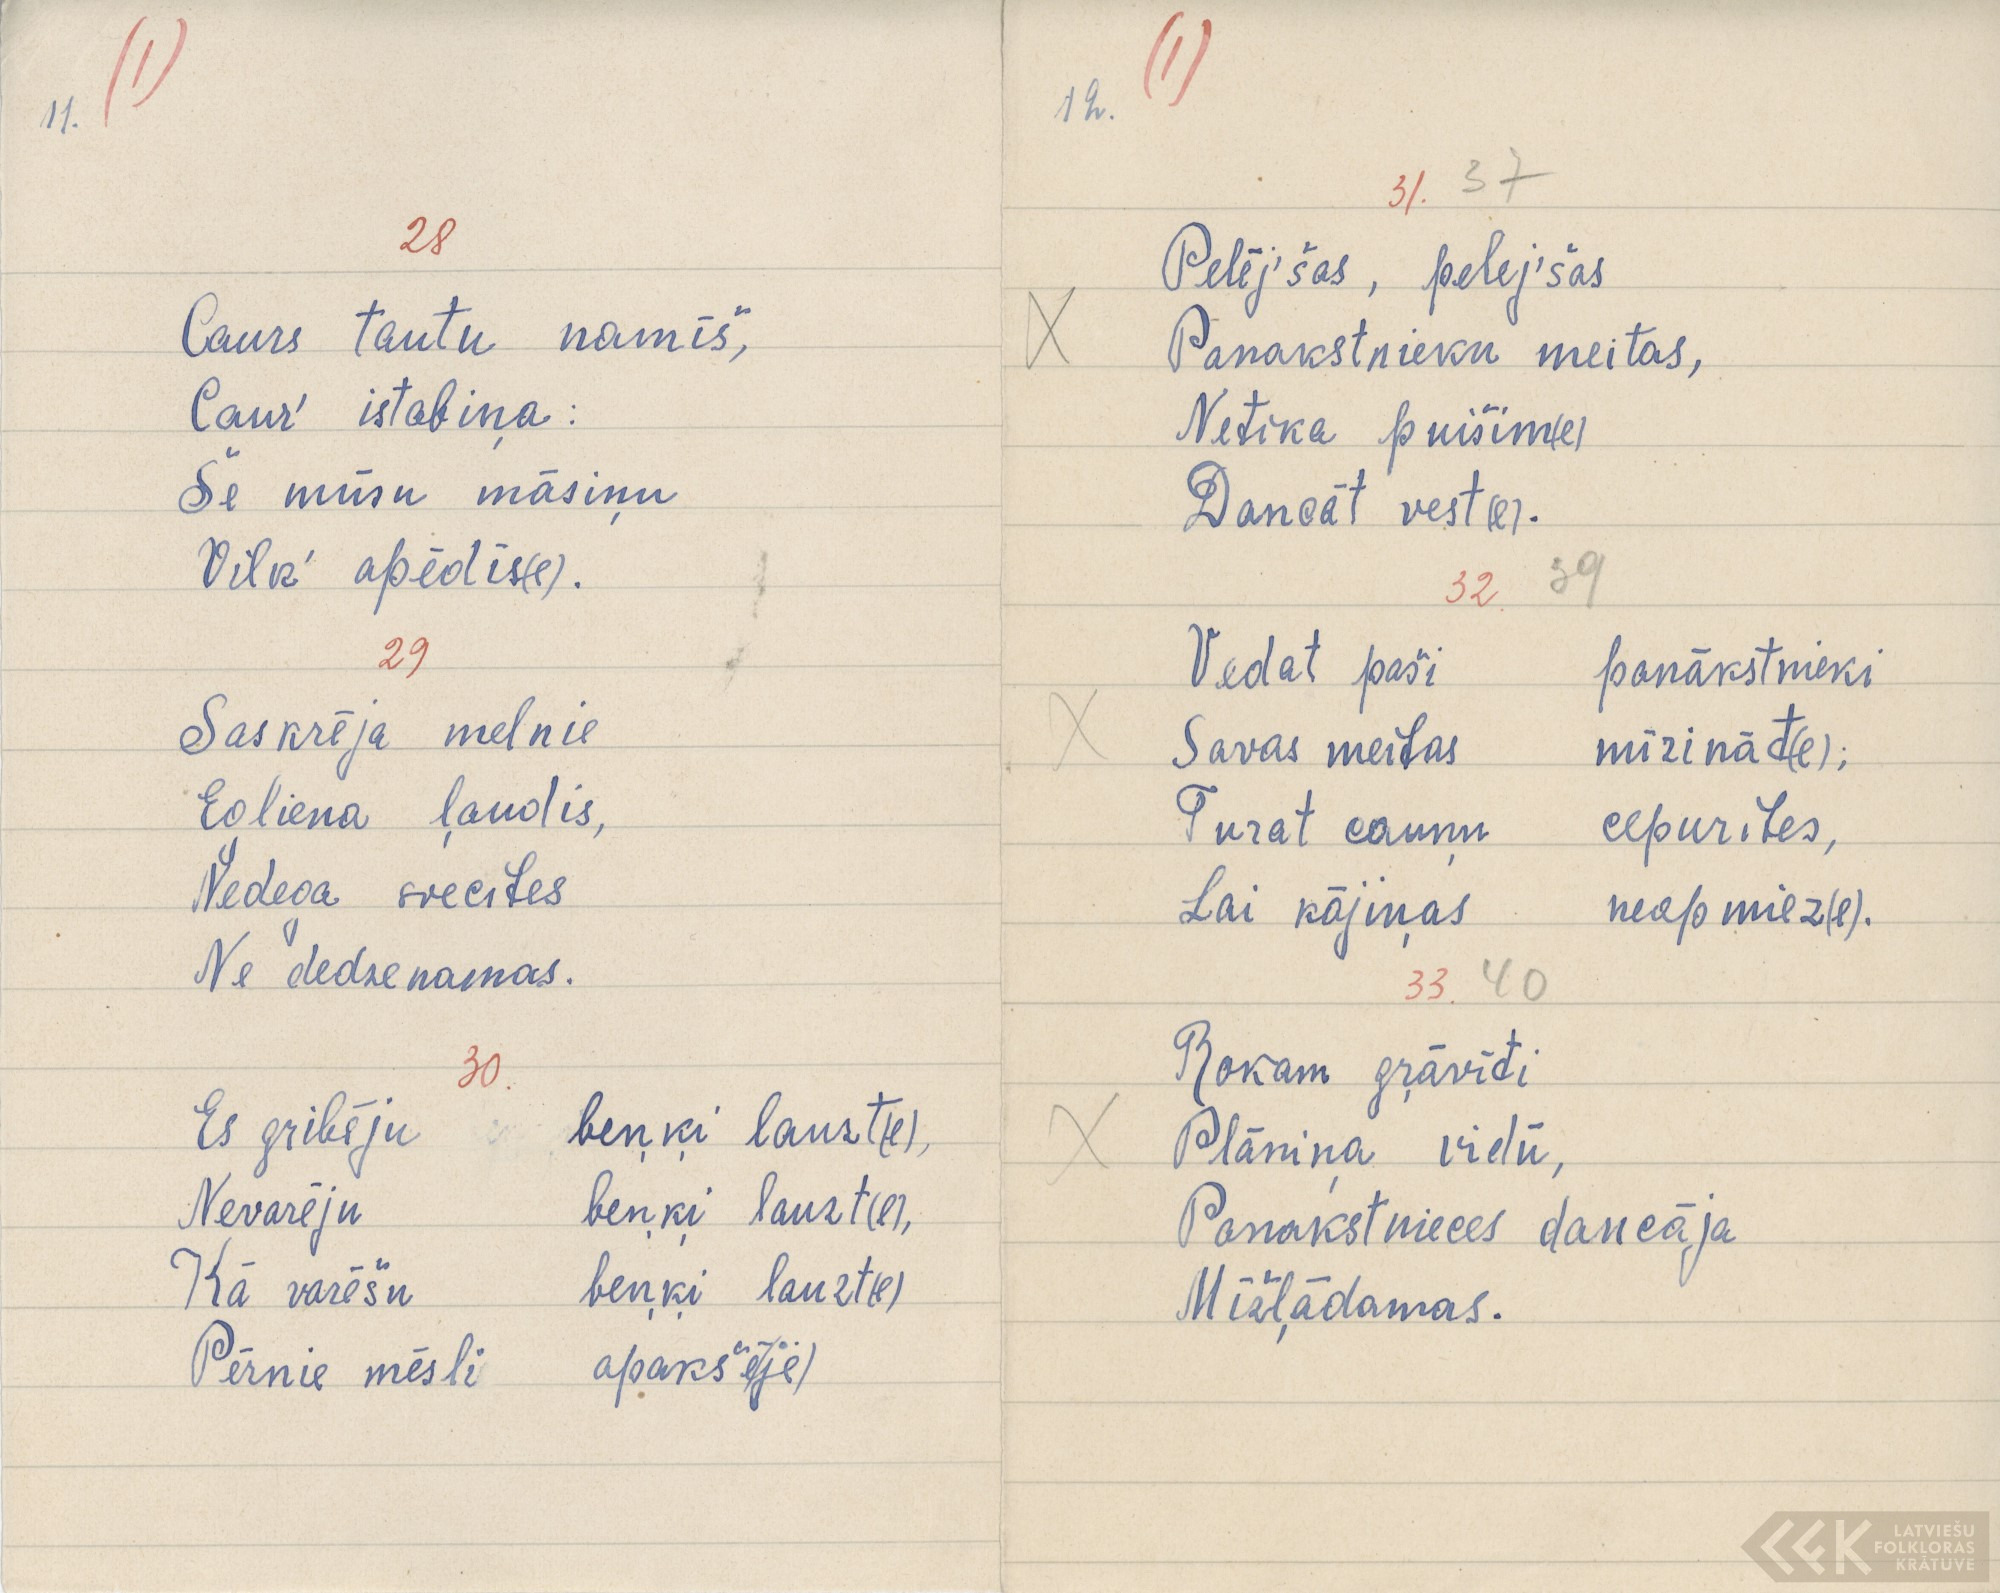 11. (1)
28
Caurs tautu namīš,
Caur' istabiņa:
Še mūsu māsiņu
Vilk' apēdīs(e).
29
Saskrēja melnie
Egliena ļaudis,
Nedega svecītes
Ne dedzenamas.
30.
Es gribēju beņķi lauzt(e),
Nevarēju beņķi lauzt(e),
Kā varēšu beņķi lauzt(e)
Pērnie mēsli apakšē(jē)
12. (1)
31. 37
Pelēj'šas, pelej'šas
X
Panakstnieku meitas,
Netika puišim(e)
Dancāt vest(e).
32. 39
Vedat paši panākstnieki
X
Savas meitas mīzināt(e);
Turat cauņu cepurītes,
Lai kājiņas neapmiez(e).
33. 40
Rokam grāvīti
X
Plāniņa vidū,
Panakstnieces dancāja
Mīžļādamas.
LATVIEŠU
FOLKLORAS
KRĀTUVE